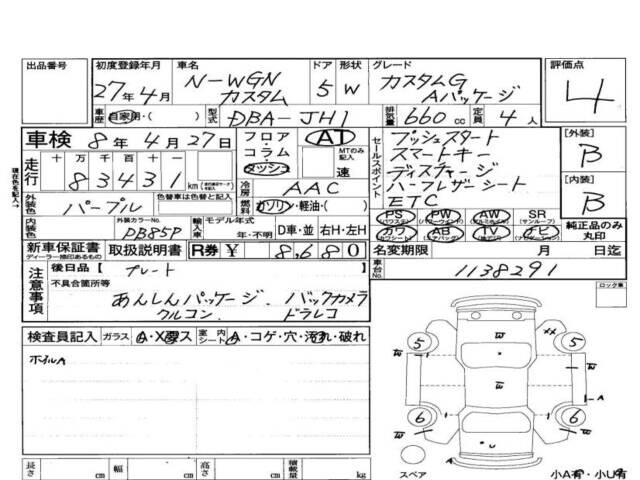 出品番号 初度登録年月 車名 ドア 形状 グレード 評価点
27年4月 N-WGN カスタム 5 W カスタムG Aパッケージ 4
車歴 自家用・( ) 型式 DBA-JH1 排気量 660cc 定員 4人
車検 8年4月27日 フロア・コラム・ダッシュ AT MTのみ記入 速
セールスポイント プッシュスタート
スマートキー
ディスチャージ
ハーフレザーシート
ETC
[外装] B
[内装] B
走行 十 万 千 百 十 一
83431 km
冷房 AAC
外装色 パープル 色替車は色替と記入
燃料 ガソリン・軽油・( )
内装色 外装カラーNo. PB85P 輸入車 モデル年式 年・不明 D車・並 右H・左H
PS PW AW SR (サンルーフ)
カワ AB TV ナビ 純正品のみ丸印
新車保証書 取扱説明書 R券 ¥ 8,680
名変期限 月 日迄
車台No. 1138291
注意事項 後日品【 プレート
不具合箇所等
あんしんパッケージ. バックカメラ
クルコン. ドラレコ
ロック車
検査員記入 ガラス A・X・ス 室内シート A・コゲ・穴・汚れ・破れ
ホイルA
5 5
6 6
W W W W W
XX
A
U
長さ cm 幅 cm 高さ cm 積載量 kg
スペア 小A有・小U有
現在色を記入→